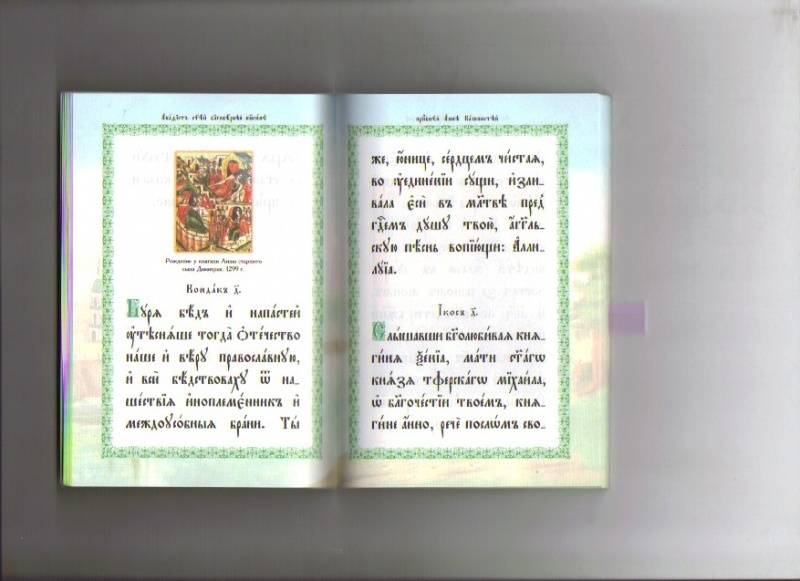 Рождение у княгини Анны старшего
сына Димитрия. 1299 г.
Конда́къ д҃.
Бꙋ́рѧ бѣ́дъ и҆ напа́стей
ᲂу҆тѣснѧ́ше тогда̀ ѻ҆те́чество
на́ше и҆ вѣ́рꙋ правосла́внꙋю,
и҆ всѝ бѣ́дствовахꙋ ѿ на-
ше́ствїѧ и҆ноплеме́нникъ и҆
междоусо́бныѧ бра́ни. Ты́
же, ю҆́нице, се́рдцемъ чи́стаѧ,
во ᲂу҆едине́нїи сꙋ́щи, и҆злива-
ла є҆сѝ въ мл҃твѣ пред
гдⷭ҇емъ дꙋ́шꙋ твою̀, а҆́гг҃ль-
скꙋю пѣ́снь вопїю́щи: А҆лли-
лꙋ́їа.
І҆́косъ д҃.
Слы́шавши бг҃олюби́ваѧ кнѧ-
ги́нѧ ѯе́нїа, ма́ти ст҃а́гѡ
кнѧ́зѧ тфе́рскагѡ мїхаи́ла,
ѡ҆ бл҃гоче́стїи твое́мъ, кнѧ-
ги́не а҆́нно, речѐ посло́мъ сво-